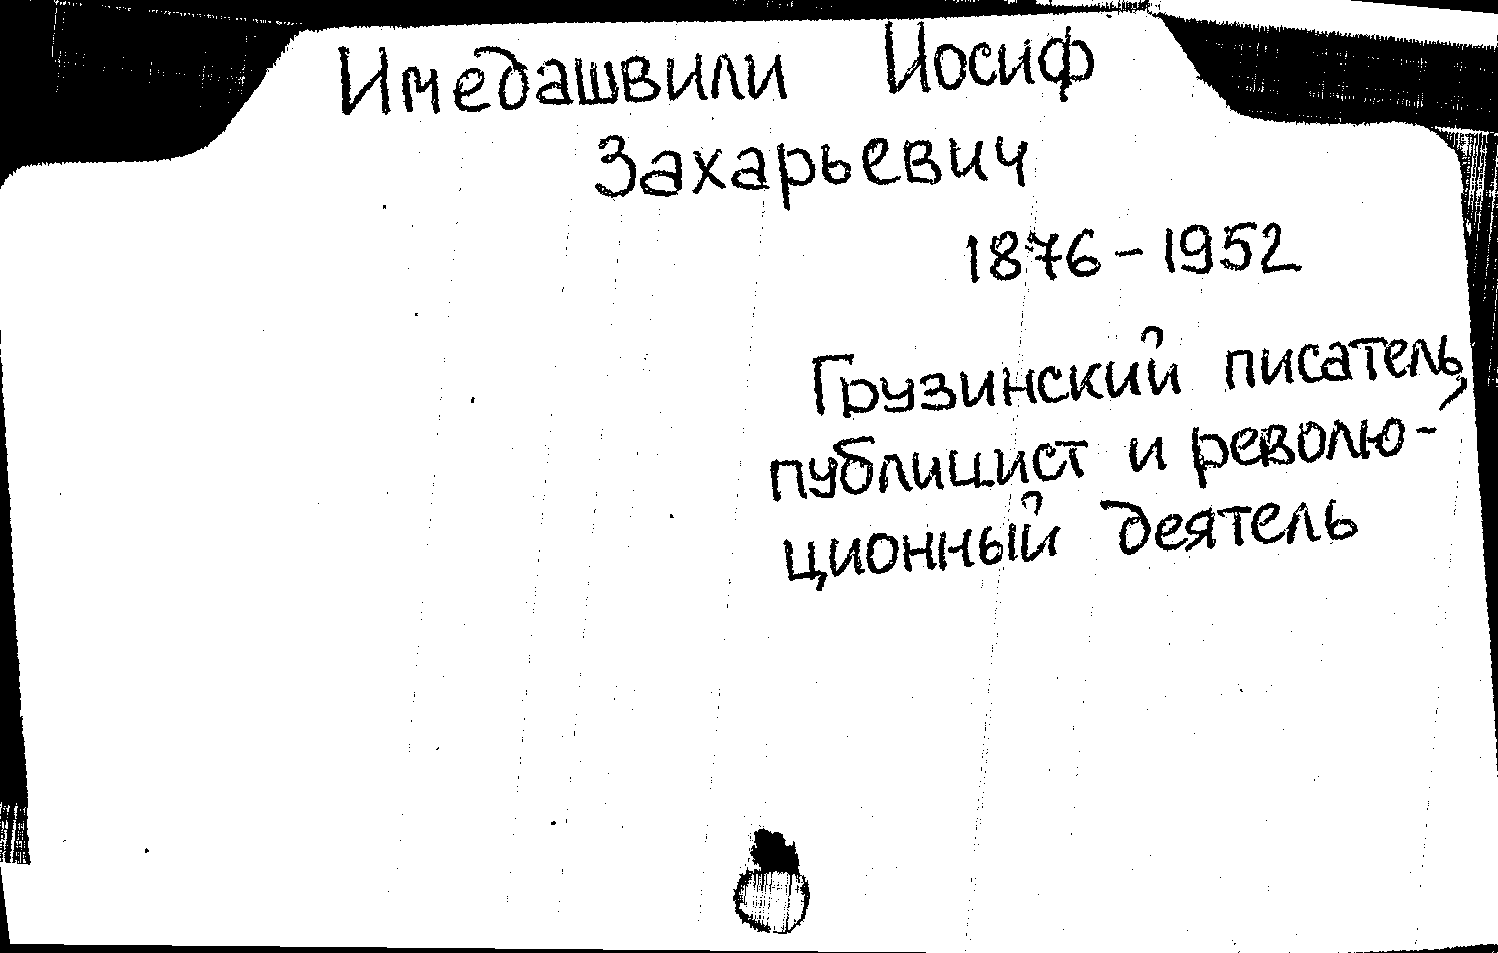 Имедашвили Иосиф
Захарьевич
1876-1952
Грузинский писатель,
публицист и револю-
ционный деятель